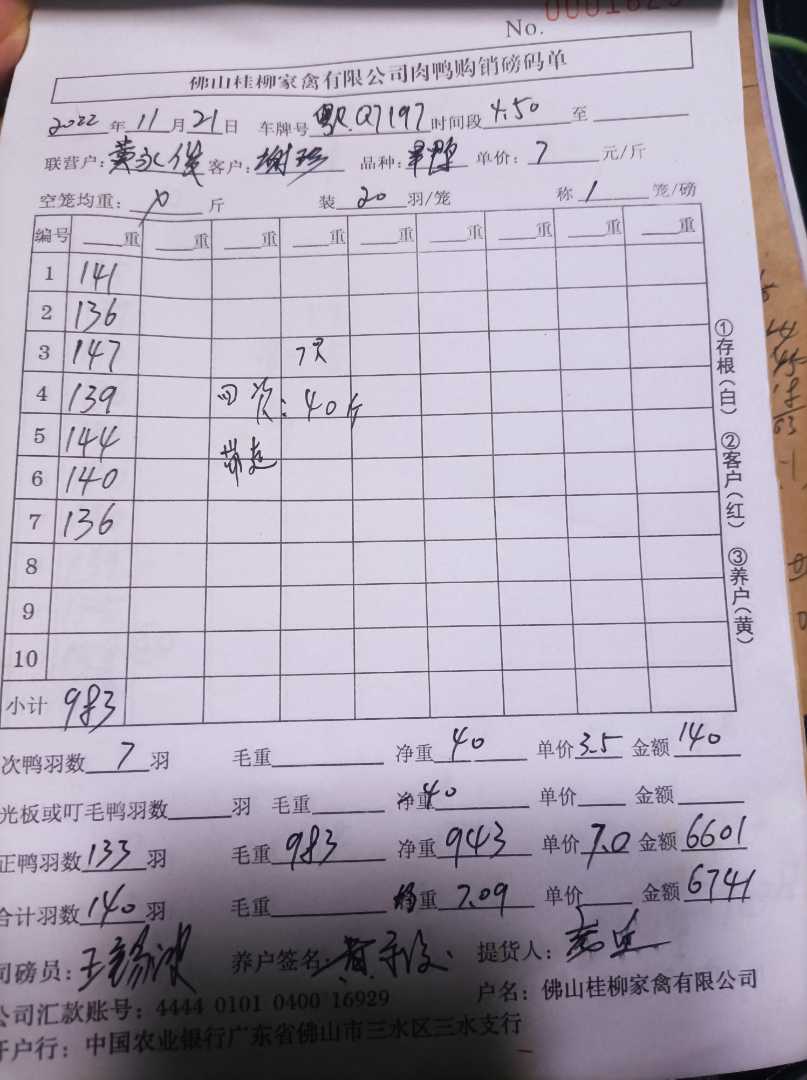 No. 0001623
佛山桂柳家禽有限公司肉鸭购销磅码单
2022年11月21日 车牌号 粤R.Q7197 时间段 4.50 至
联营户: 黄永俊 客户: 谢珍 品种: 单价: 7 元/斤
空笼均重: 斤 装 20 羽/笼 称 1 笼/磅
编号 重 重 重 重 重 重 重 重 重
1 141
2 136
3 147 7次
4 139 回次: 40斤
5 144
6 140
7 136
8
9
10
小计 983
①存根(白) ②客户(红) ③养户(黄)
次鸭羽数 7 羽 毛重 净重 40 单价 3.5 金额 140
光板或叮毛鸭羽数 羽 毛重 净重 40 单价 金额
正鸭羽数 133 羽 毛重 983 净重 943 单价 7.0 金额 6601
合计羽数 140 羽 毛重 均重 7.09 单价 金额 6741
司磅员: 养户签名: 提货人:
公司汇款账号: 4444 0101 0400 16929 户名: 佛山桂柳家禽有限公司
开户行: 中国农业银行广东省佛山市三水区三水支行